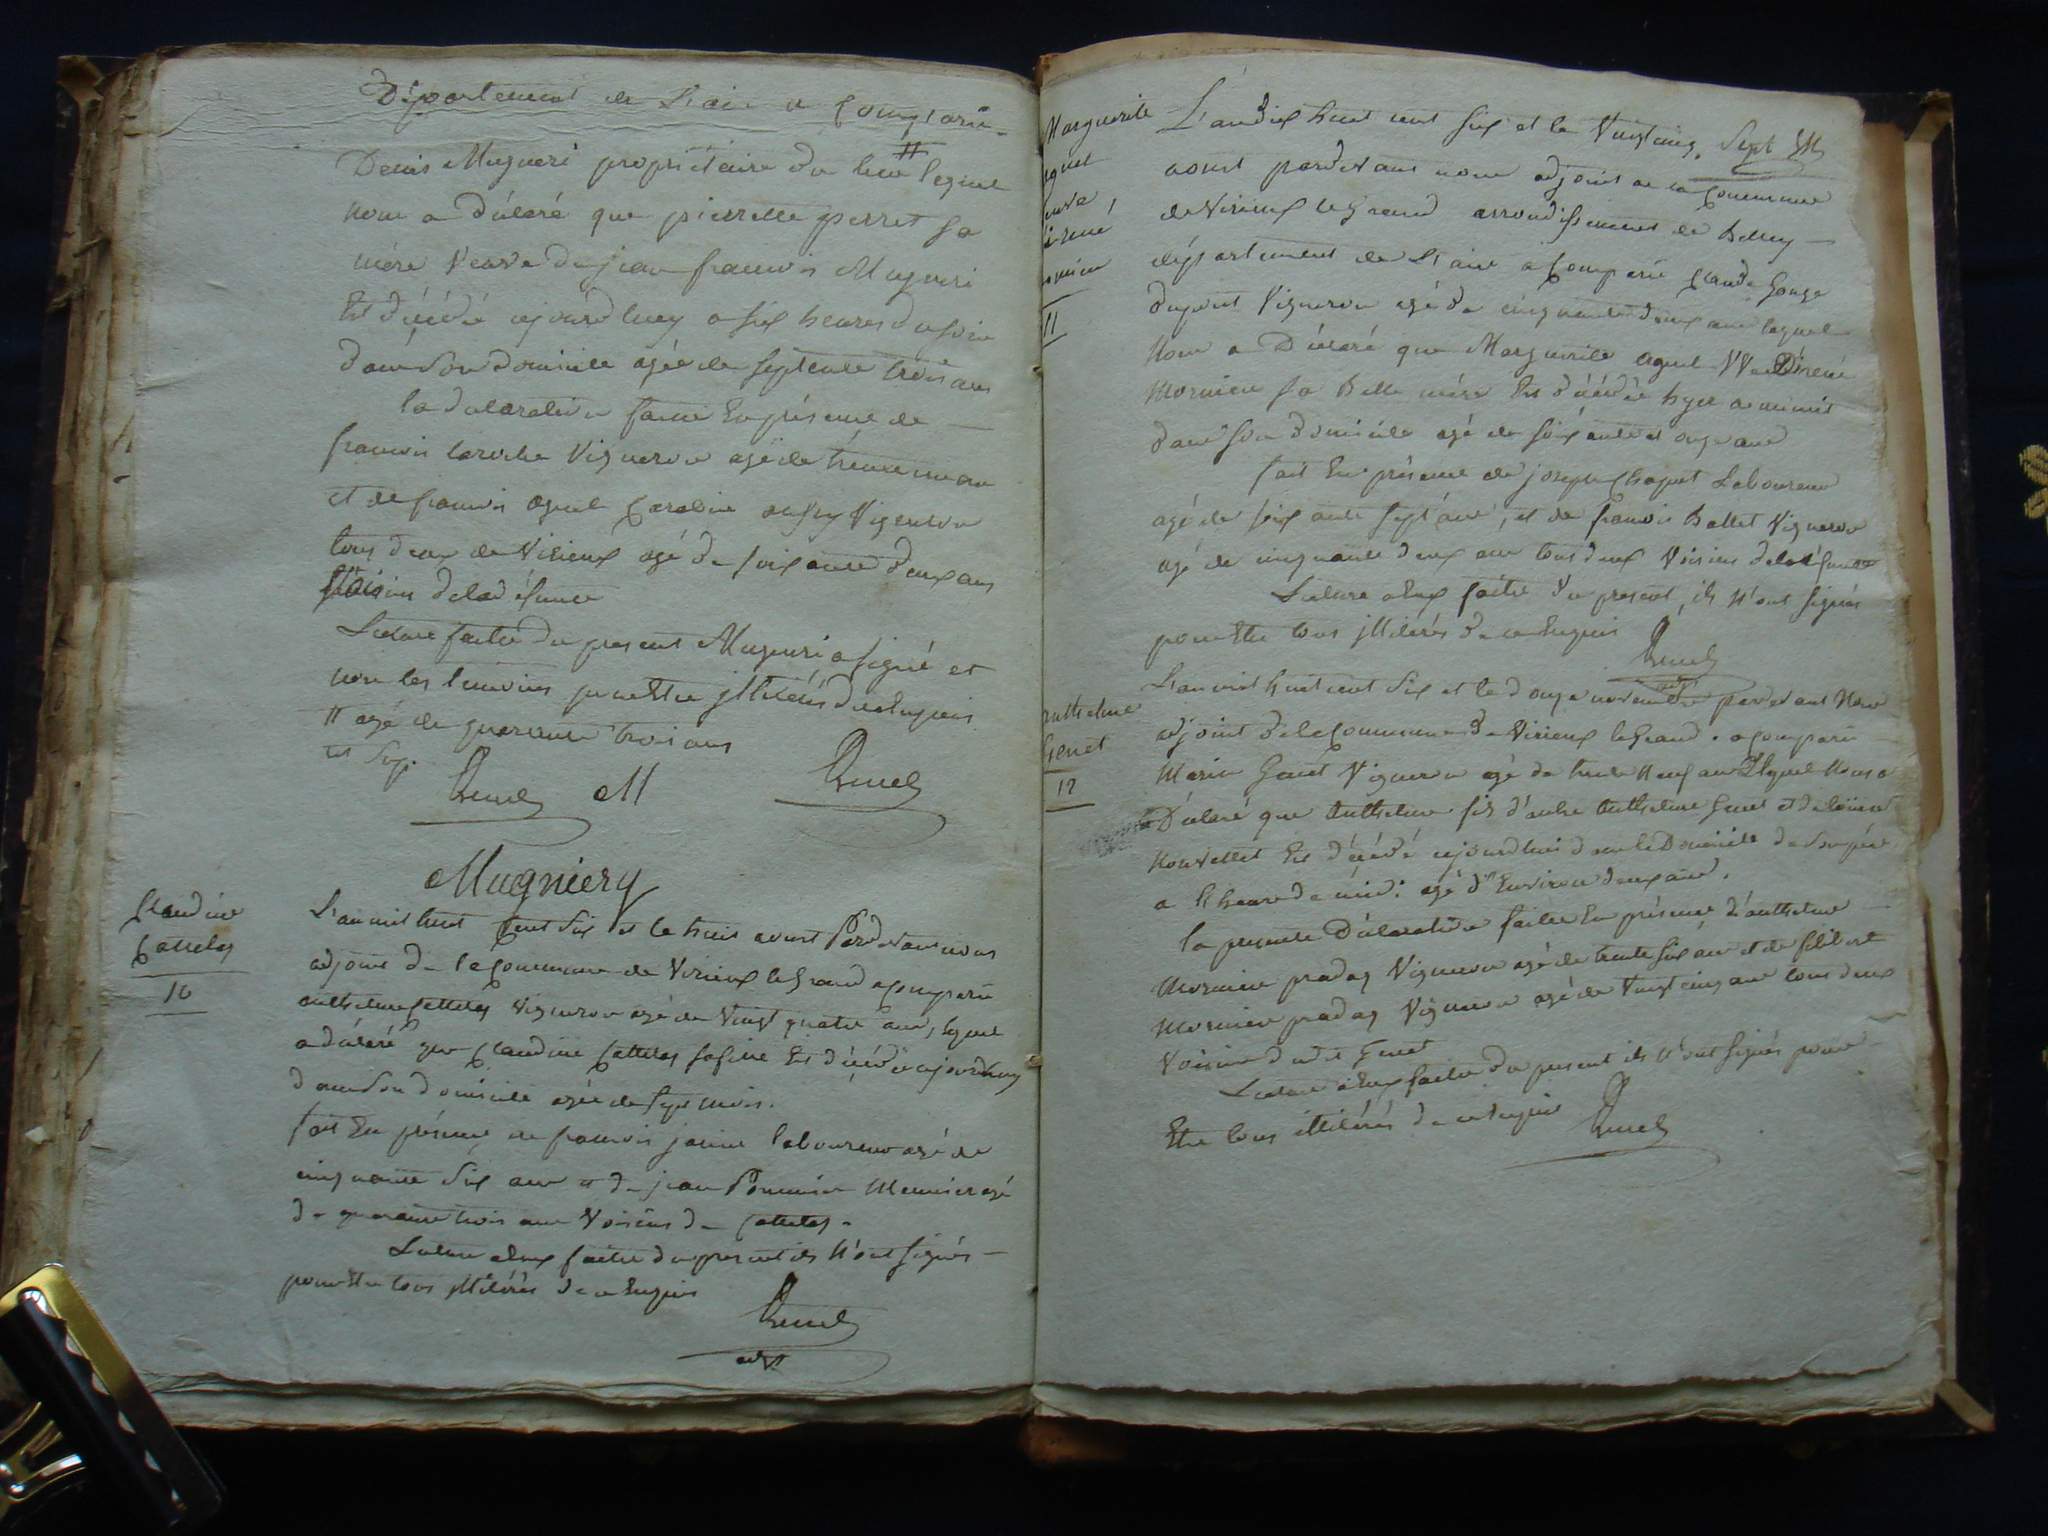 Département de L'ain a Comparu
Denis Mugneri propriétaire du lieu # lequel
nous a déclaré que pierrette perret sa
mère veuve de jean francois Mugneri
Est décédé ajourdhuy a six heures du soir
dans son domicile agée de septente trois ans
la déclaration faitte En présence de
francois laroche Vigneron agé de trente un an
et de francois aguel Vigneron
tous deux de Virieux agé de soixante deux ans
Voisins de la défunte
Lecture faitte du present Mugneri a signé et
non les temoins pour Etre jllitérés de ce Enquis
# agé de quarante trois ans
M
Mugniery
Claudine
Cattelas
10
L'an mil huit Cent Six et le huit aoust Pardevant nous
adjoint de la Commune de Virieux le Grand a Comparu
anthelme Cattelas Vigneron agé de Vingt quatre ans, lequel
a déclaré que Claudine Cattelas sa fille Est décédée ajourdhuy
dans son domicile agée de sept mois.
fait En présence de francois janin laboureur agé de
cinquante Six ans et de jean Pommier Meunier agé
de quarante trois ans Voisins de Cattelas.
Lecture a Eux faitte du present ils N'ont signés
pour Etre tous jllitérés de ce Enquis
adjt
Marguerite
aguel
veuve
11
L'an dix huit cent six et le Vingt cinq
aoust pardevant nous adjoint de la Commune
de Virieux le Grand arrondissement de Belley
département de L'ain a Comparu Claude Gonge
dupont Vigneron agé de cinquante deux ans lequel
Nous a Déclaré que Marguerite aguel
Mornieu sa Belle mère Est décédée hyer a minuit
dans son domicile agé de soixante et onze ans
fait En présence de joseph Chaput Laboureur
agé de soixante sept ans, et de francois Ballet Vigneron
agé de cinquante deux ans tous deux Voisins de la défunte
Lecture a Eux faitte du present, ils N'ont signés
pour Etre tous jllitérés de ce Enquis
anthelme
Genet
12
L'an mil huit cent Six et le douze novembre pardevant Nous
adjoint de la Commune de Virieux le Grand. a Comparu
Marin Genet Vigneron agé de trente Neuf ans Lequel Nous a
Déclaré que Anthelme fils d'autre Anthelme Genet et de
Nouvellet Est décédé ajourdhui dans le Domicile de son père
a l'heure de midi agé d'Environ deux ans.
la presente Déclaration faitte En présence d'anthelme
Mornieu pradaz Vigneron agé de trente six ans et de filibert
Mornieu pradaz Vigneron agé de Vingt cinq ans tous deux
Voisins dudit Genet
Lecture a Eux faitte du present ils N'ont signés pour
Etre tous illitérés de ce Enquis